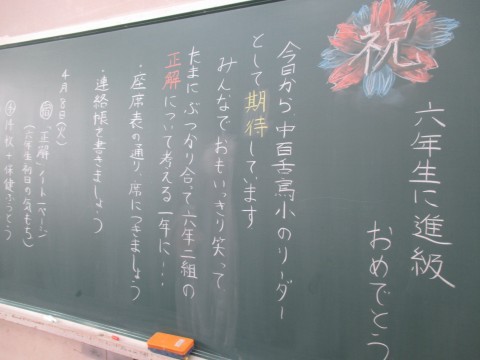 祝
六年生に進級
おめでとう
今日から中百舌鳥小のリーダー
として期待しています
みんなでおもいっきり笑って
たまにぶつかり合って六年二組の
正解について考える一年に!!
・座席表の通り、席につきましょう
・連絡帳を書きましょう
4月8日(火)
「正解」ノート一ページ
(六年生初日の気もち)